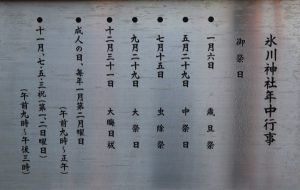 氷川神社年中行事
御祭日
●一月六日 歳旦祭
●五月二十九日 中祭日
●七月十五日 虫除祭
●九月二十九日 大祭日
●十二月三十一日 大晦日祓
●成人の日、毎年一月第二月曜日
(午前九時～正午)
●十一月、七・五・三祝(第一、二日曜日)
(午前九時～午後三時)